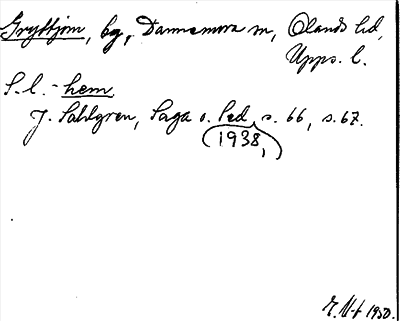 Gryttjom, by, Dannemora sn, Olands hd,
Upps. l.
S.l. - hem
J. Sahlgren, Saga o. Sed s. 66, s. 67.
(1938,)
1950.